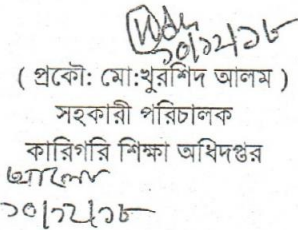 ১০/১২/১৮
( প্রকৌ: মো:খুরশিদ আলম )
সহকারী পরিচালক
কারিগরি শিক্ষা অধিদপ্তর
১০/১২/১৮